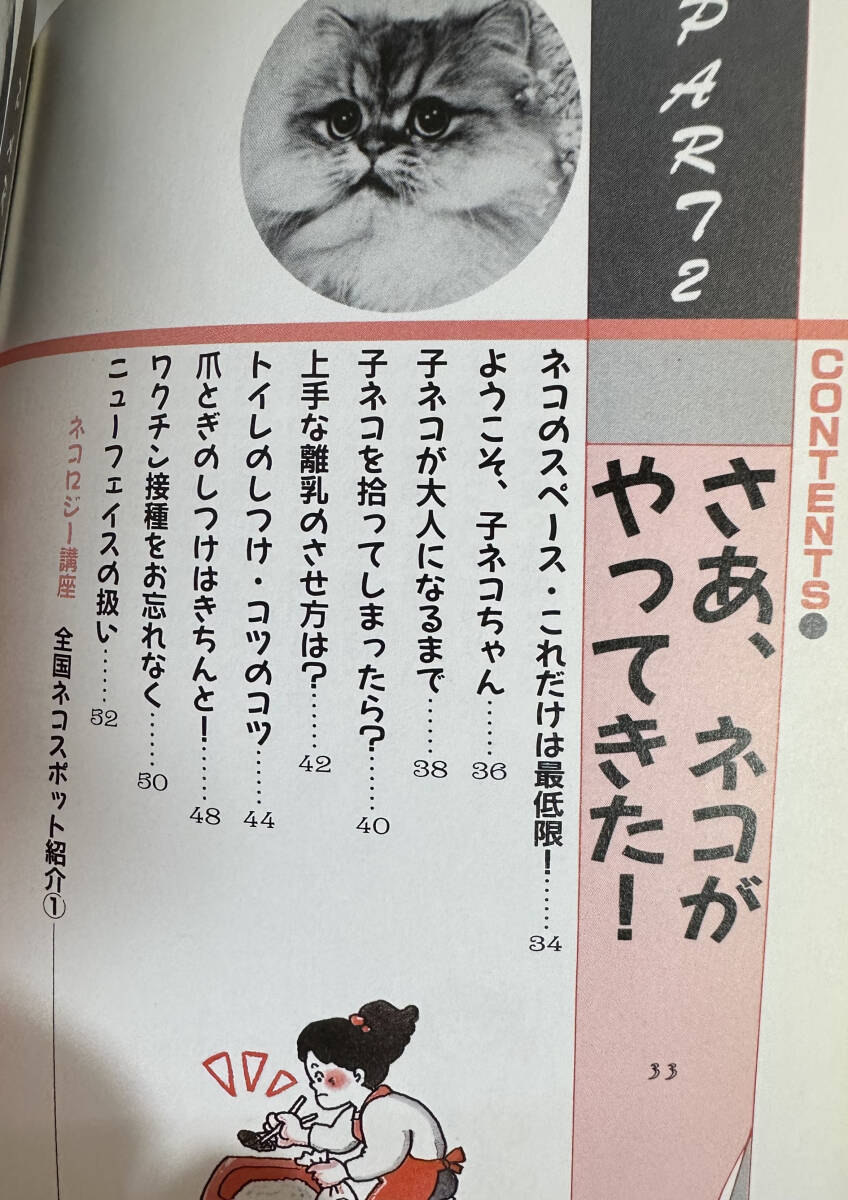 CONTENTS●
PART2
さあ、ネコが
やってきた!
33
ネコのスペース・これだけは最低限!……34
ようこそ、子ネコちゃん……36
子ネコが大人になるまで……38
子ネコを拾ってしまったら?……40
上手な離乳のさせ方は?……42
トイレのしつけ・コツのコツ……44
爪とぎのしつけはきちんと!……48
ワクチン接種をお忘れなく……50
ニューフェイスの扱い……52
ネコロジー講座 全国ネコスポット紹介①